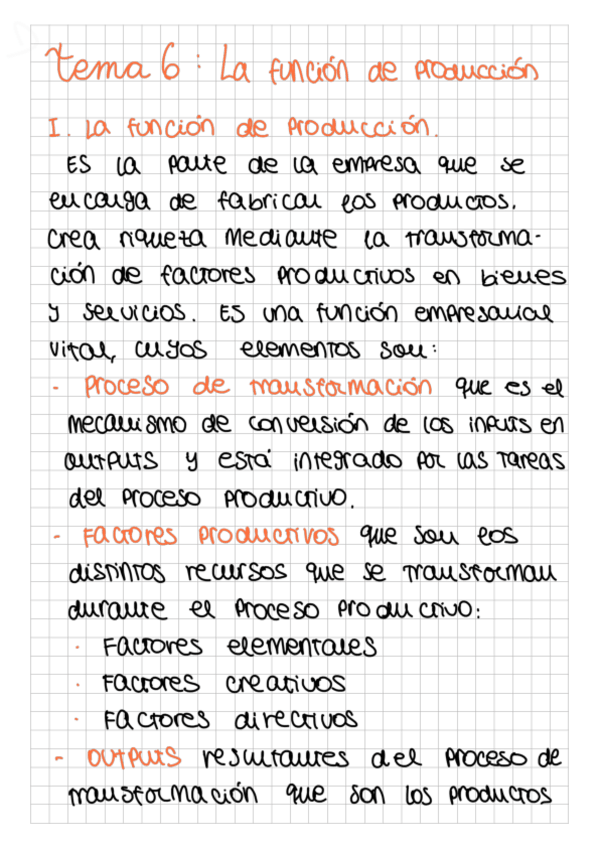 tema 6: La función de producción
I. La función de producción.
Es la parte de la empresa que se
encarga de fabricar los productos.
Crea riqueza mediante la transforma-
ción de factores productivos en bienes
y servicios. Es una función empresarial
vital, cuyos elementos son:
- Proceso de transformación que es el
mecanismo de conversión de los inputs en
outputs y está integrado por las tareas
del proceso productivo.
- Factores productivos que son los
distintos recursos que se transforman
durante el proceso productivo:
· Factores elementales
· Factores creativos
· Factores directivos
- Outputs resultantes del proceso de
transformación que son los productos